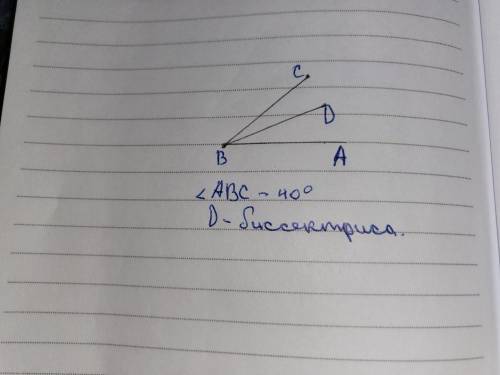 C
D
B
A
<ABC - 40°
D - биссектриса.